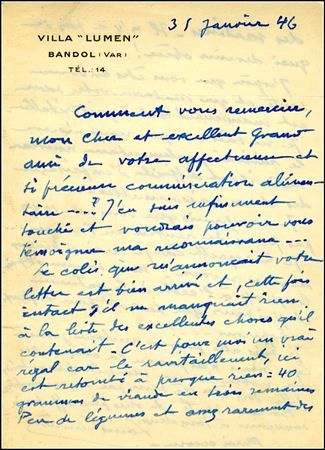 VILLA "LUMEN"
BANDOL (VAR)
TÉL.: 14
31 janvier 46
Comment vous remercier,
mon cher et excellent grand
ami de votre affectueuse et
si précieuse commisération alimen-
taire ----? J'en suis infiniment
touché et voudrais pouvoir vous
témoigner ma reconnaissance ---
Le colis, que m'annonçait votre
lettre est bien arrivé et, cette fois
intact : il ne manquait rien
à la liste des excellentes choses qu'il
contenait - C'est pour moi un vrai
régal car le ravitaillement, ici
est retombé à presque rien = 40
grammes de viande en trois semaines
Peu de légumes et assez rarement des